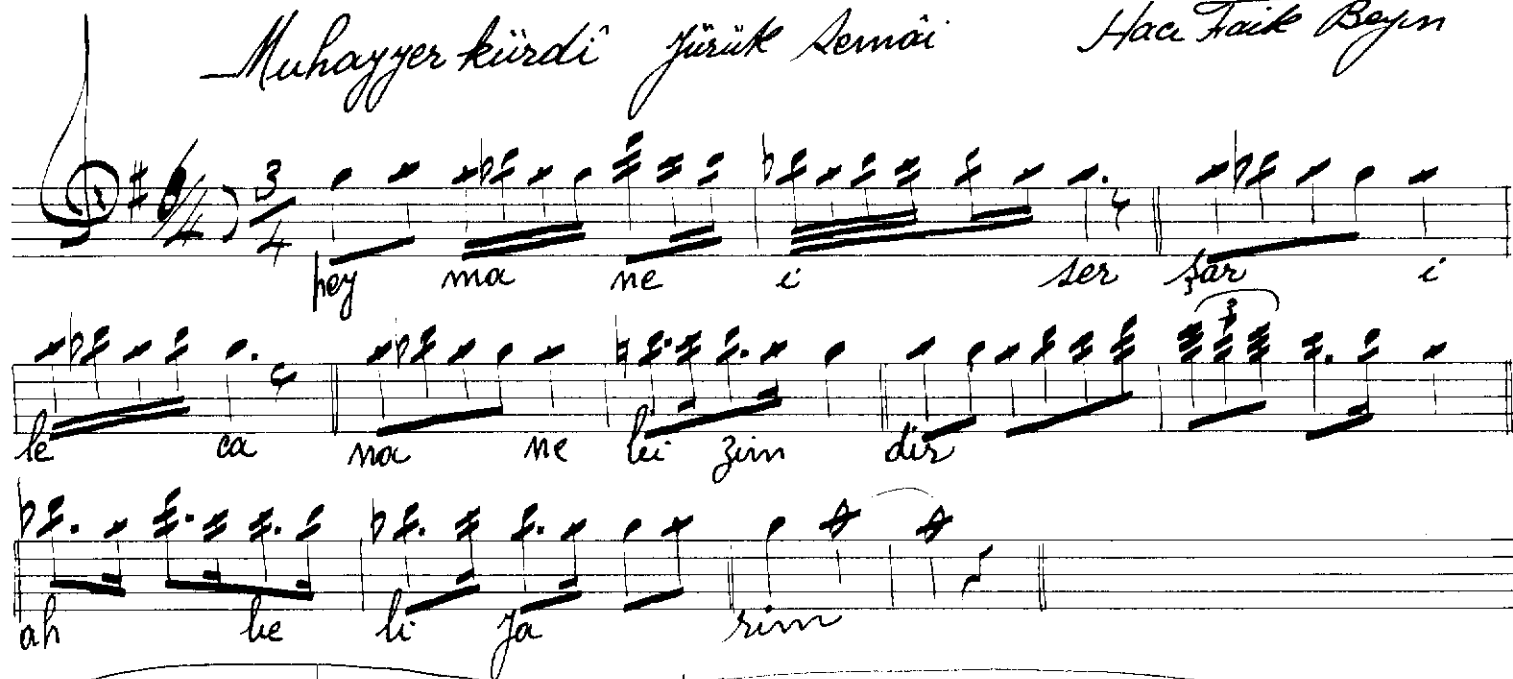 Muhayyer kürdî Yürük Semâi Hacı Faik Beyin
3/4
pey ma ne i ser şar i
le ca na ne lei zim dir
3
ah be li ya rim